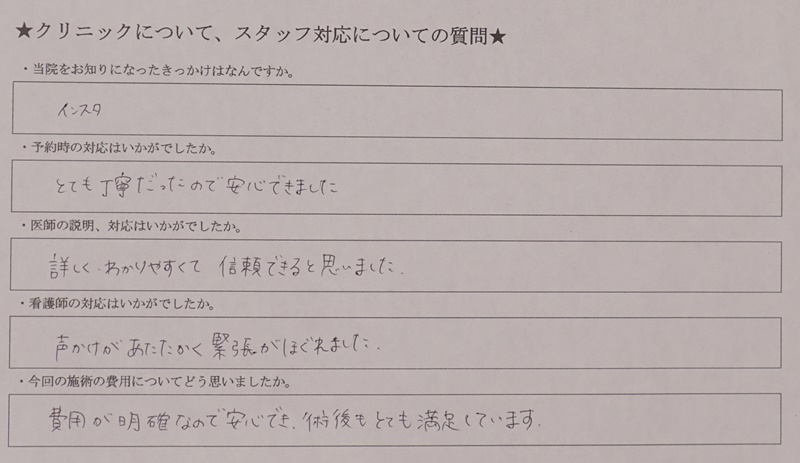 ★クリニックについて、スタッフ対応についての質問★
・当院をお知りになったきっかけはなんですか。
インスタ
・予約時の対応はいかがでしたか。
とても丁寧だったので安心できました
・医師の説明、対応はいかがでしたか。
詳しく、わかりやすくて 信頼できると思いました.
・看護師の対応はいかがでしたか。
声かけがあたたかく緊張がほぐれました.
・今回の施術の費用についてどう思いましたか。
費用が明確なので安心でき、術後もとても満足しています.